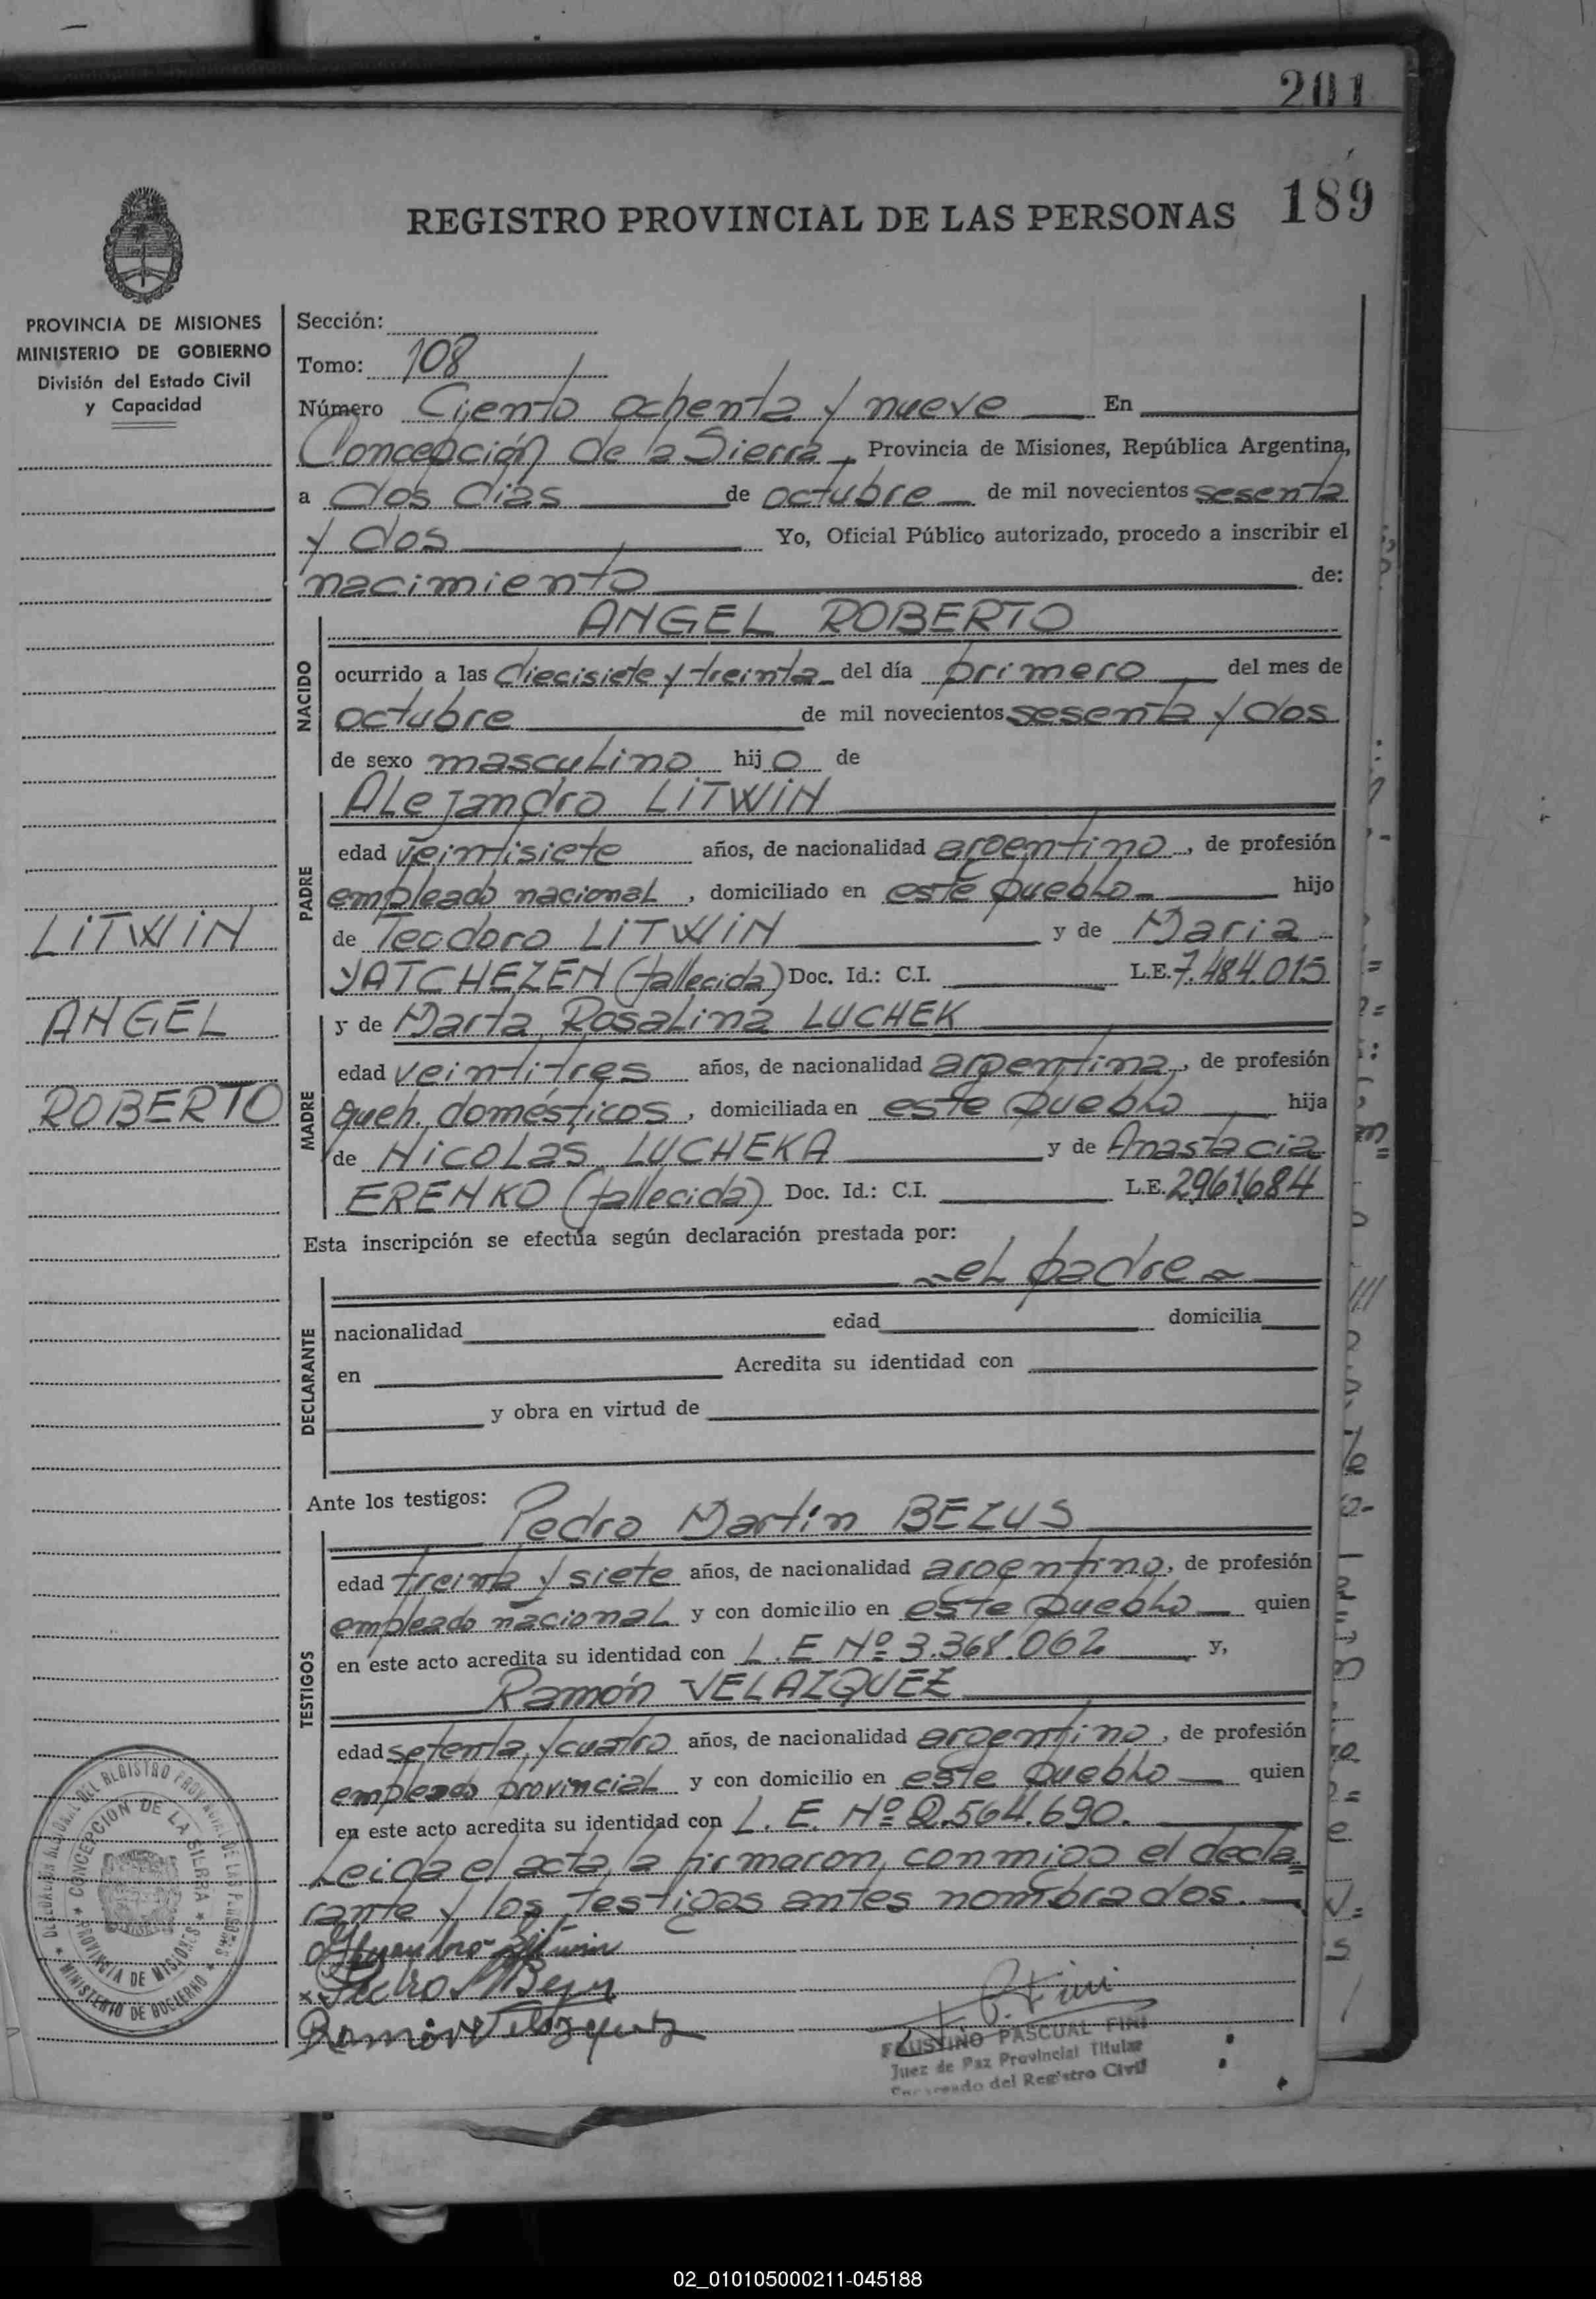 201
189
REGISTRO PROVINCIAL DE LAS PERSONAS
PROVINCIA DE MISIONES
MINISTERIO DE GOBIERNO
División del Estado Civil
y Capacidad
LITWIN
ANGEL
ROBERTO
Sección:
Tomo: 108
Número Ciento ochenta y nueve En
Concepción de la Sierra, Provincia de Misiones, República Argentina,
a dos dias de octubre de mil novecientos sesenta
y dos Yo, Oficial Público autorizado, procedo a inscribir el
nacimiento de:
NACIDO
ANGEL ROBERTO
ocurrido a las diecisiete y treinta del día primero del mes de
octubre de mil novecientos sesenta y dos
de sexo masculino hijo de
PADRE
Alejandro LITWIN
edad veintisiete años, de nacionalidad argentino, de profesión
empleado nacional, domiciliado en este pueblo hijo
de Teodoro LITWIN y de Maria
YATCHEZEN (fallecida) Doc. Id.: C.I. L.E. 7.484.015
MADRE
y de Marta Rosalina LUCHEK
edad veintitres años, de nacionalidad argentina, de profesión
queh. domésticos, domiciliada en este pueblo hija
de Nicolás LUCHEKA y de Anastacia
ERENKO (fallecida) Doc. Id.: C.I. L.E. 2961684
Esta inscripción se efectúa según declaración prestada por:
el padre
DECLARANTE
nacionalidad edad domicilia
en Acredita su identidad con
y obra en virtud de
Ante los testigos:
TESTIGOS
Pedro Martín BEZUS
edad treinta y siete años, de nacionalidad argentino, de profesión
empleado nacional y con domicilio en este pueblo quien
en este acto acredita su identidad con L.E Nº 3.368.062 y,
Ramón VELAZQUEZ
edad setenta y cuatro años, de nacionalidad argentino, de profesión
empleado provincial y con domicilio en este pueblo quien
en este acto acredita su identidad con L. E. Nº 2.564.690.
Leida el acta, la firmaron, conmigo el decla=
rante y los testigos antes nombrados.
Alejandro Litwin
Pedro M Bezus
Ramón Velazquez
P. Fini
FAUSTINO PASCUAL FINI
Juez de Paz Provincial Titular
Encargado del Registro Civil
REGISTRO PROVINCIAL DE LAS PERSONAS
MINISTERIO DE GOBIERNO
CONCEPCION DE LA SIERRA
PROVINCIA DE MISIONES
02_010105000211-045188